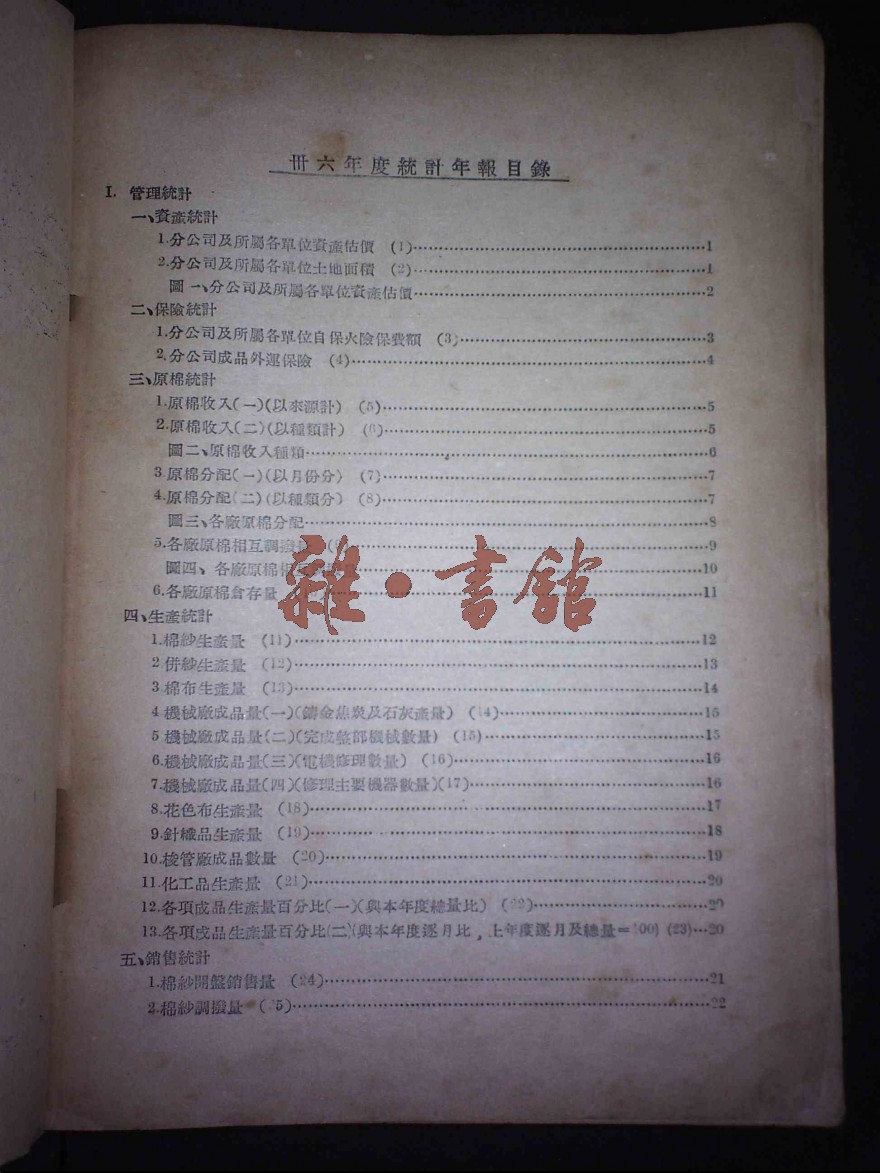 卅六年度統計年報目錄
I. 管理統計
一、資產統計
1.分公司及所屬各單位資產估價 (1)…………1
2.分公司及所屬各單位土地面積 (2)…………1
圖一、分公司及所屬各單位資產估價…………2
二、保險統計
1.分公司及所屬各單位自保火險保費額 (3)…………3
2.分公司成品外運保險 (4)…………4
三、原棉統計
1.原棉收入(一)(以來源計) (5)…………5
2.原棉收入(二)(以種類計) (6)…………5
圖二、原棉收入種類…………6
3.原棉分配(一)(以月份分) (7)…………7
4.原棉分配(二)(以種類分) (8)…………7
圖三、各廠原棉分配…………8
5.各廠原棉相互調撥…………9
圖四、各廠原棉相…………10
6.各廠原棉倉存量…………11
雜·書舘
四、生產統計
1.棉紗生產量 (11)…………12
2.併紗生產量 (12)…………13
3.棉布生產量 (13)…………14
4.機械廠成品量(一)(鑄金焦炭及石灰產量) (14)…………15
5.機械廠成品量(二)(完成整部機械數量) (15)…………15
6.機械廠成品量(三)(電機修理數量) (16)…………16
7.機械廠成品量(四)(修理主要機器數量)(17)…………16
8.花色布生產量 (18)…………17
9.針織品生產量 (19)…………18
10.梭管廠成品數量 (20)…………19
11.化工品生產量 (21)…………20
12.各項成品生產量百分比(一)(與本年度總量比) (22)…………20
13.各項成品生產量百分比(二)(與本年度逐月比,上年度逐月及總量=100) (23)…20
五、銷售統計
1.棉紗開盤銷售量 (24)…………21
2.棉紗調撥量 (25)…………22